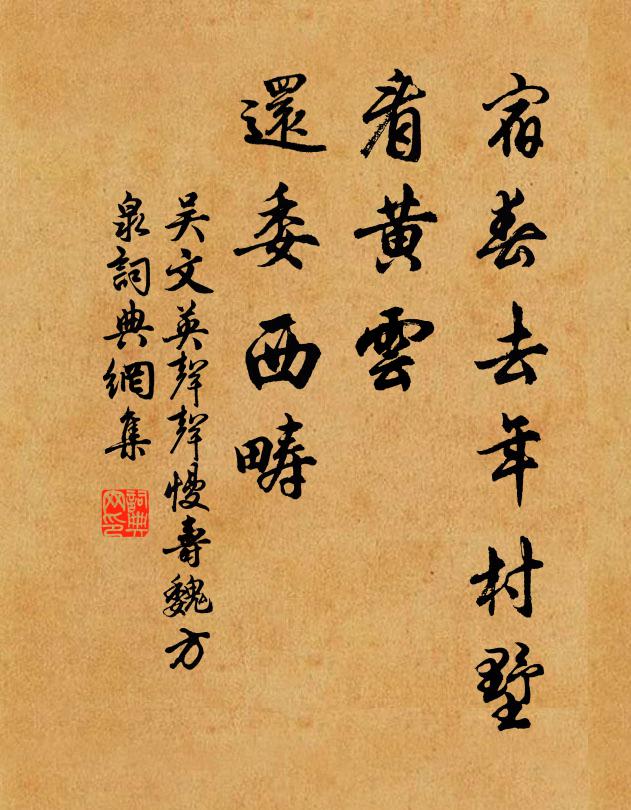 宿舂去年村墅
看黃雲
還委西疇
吴文英聲聲慢壽魏方
泉詞典網集
詞典
网印